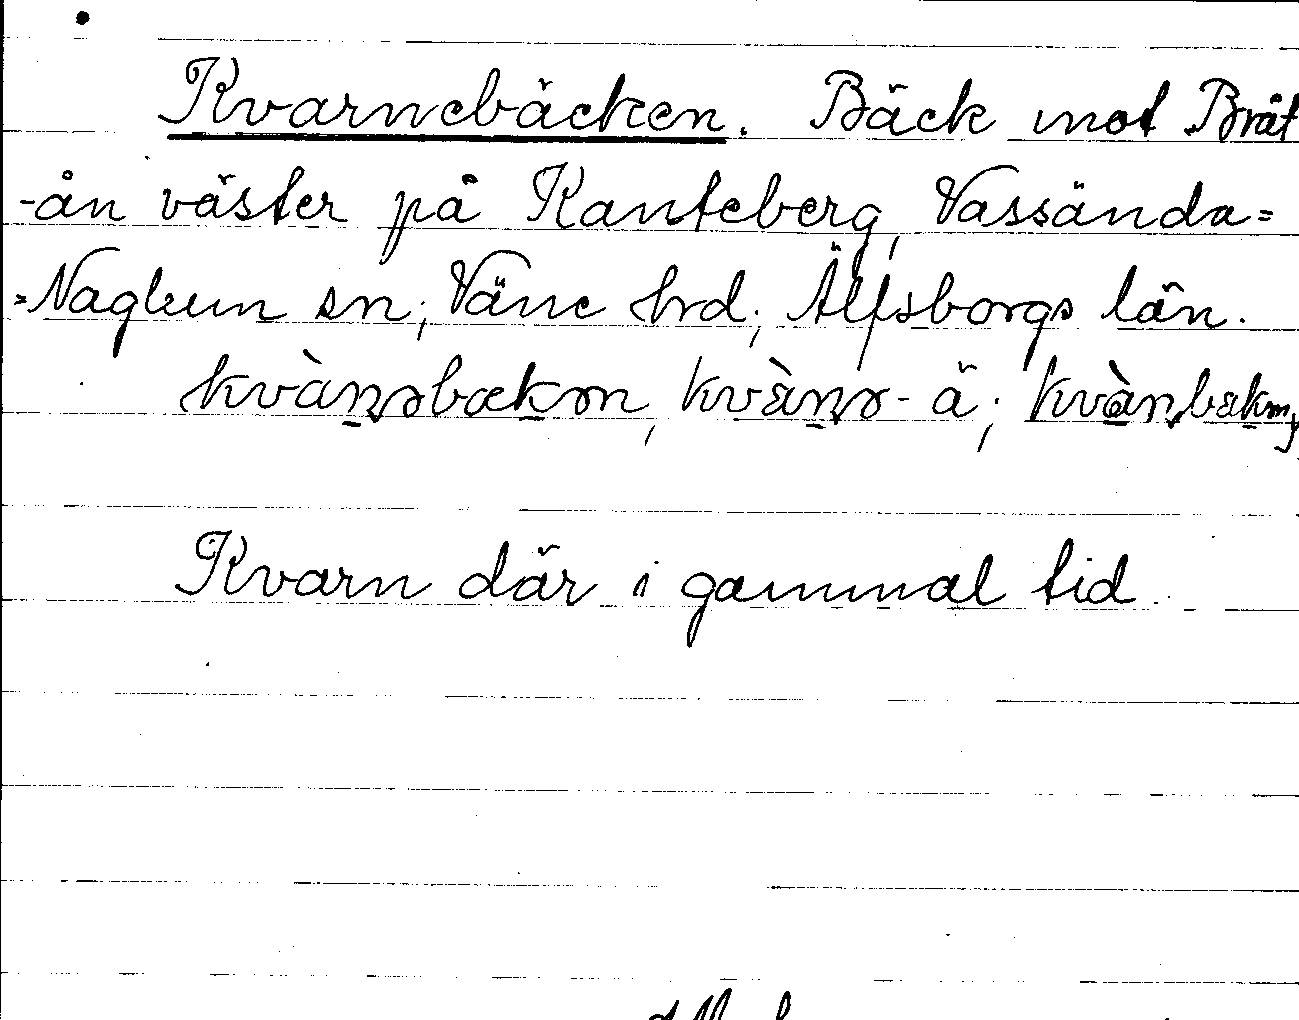 Kvarnebäcken. Bäck mot Bråt
-ån väster på Kanteberg, Vassända=
=Naglum sn, Väne hd, Älfsborgs län.
kvàṇəbækən, kvàṇə- ä;
Kvarn där i gammal tid